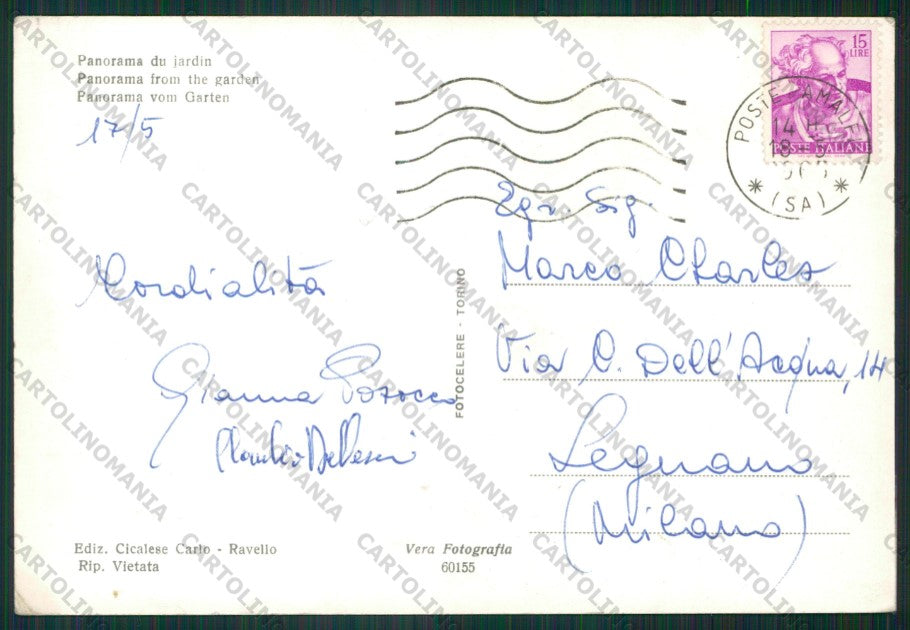 Panorama du jardin
Panorama from the garden
Panorama vom Garten
17/5
Cordialità
Gianna
Claudio
Ediz. Cicalese Carlo - Ravello
Rip. Vietata
Vera Fotografia
60155
FOTOCELERE - TORINO
15
LIRE
POSTE ITALIANE
POSTE AMALFI
14
18-5
(SA)
Egr. Sig.
Marco Charles
Via C. Dell'Acqua, 14
Legnano
(Milano)
CARTOLINOMANIA